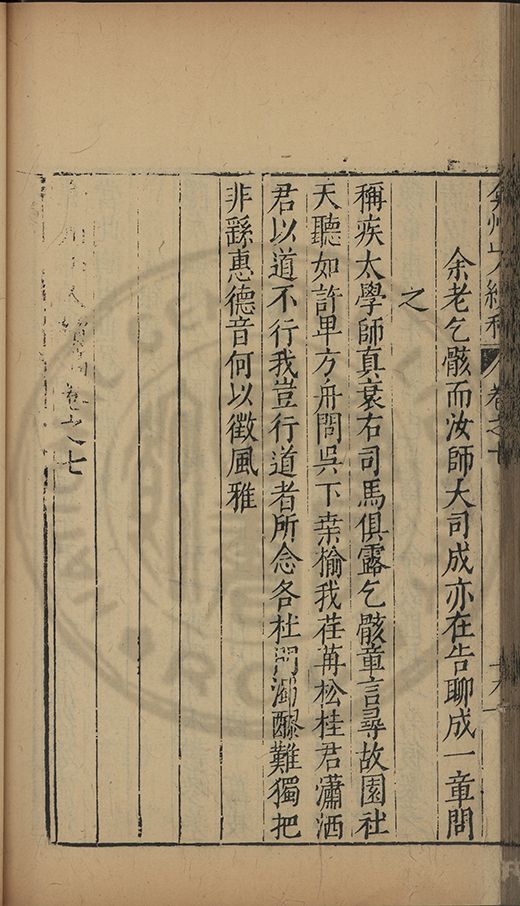 弇州山人續稿 卷之七
余老乞骸而汝師大司成亦在告聊成一章問
之
稱疾太學師真衰右司馬俱露乞骸章言尋故園社
天聽如許卑方舟問吳下桑榆我荏苒松桂君瀟洒
君以道不行我豈行道者所念各杜門濁醪難獨把
非繇惠德音何以徵風雅
卷之七